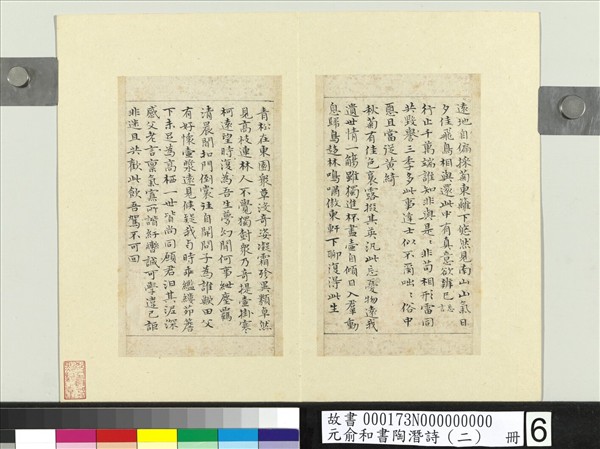 遠地自偏採菊東籬下悠然見南山山氣日
夕佳飛鳥相與還此中有真意欲辨已忘言
行止千萬端誰知非與是〻非苟相形雷同
共毀譽三季多此事達士似不爾咄〻俗中
惡且當從黃綺
秋菊有佳色裛露掇其英汎此忘憂物遠我
遺世情一觴雖獨進杯盡壺自傾日入羣動
息歸鳥趨林鳴嘯傲東軒下聊復得此生
青松在東園衆草沒奇姿凝霜殄異類卓然
見高枝連林人不覺獨對衆乃奇提壺掛寒
柯遠望時復為吾生夢幻間何事紲塵羈
清晨聞扣門倒裳往自開問子為誰歟田父
有好懷壺漿遠見候疑我與時乖繿縷茆簷
下未足為高栖一世皆尚同願君汩其泥深
感父老言稟氣寡所諧紆轡誠可學違己詎
非迷且共歡此飲吾駕不可回
故書 000173N000000000
元俞和書陶潛詩(二) 冊
6